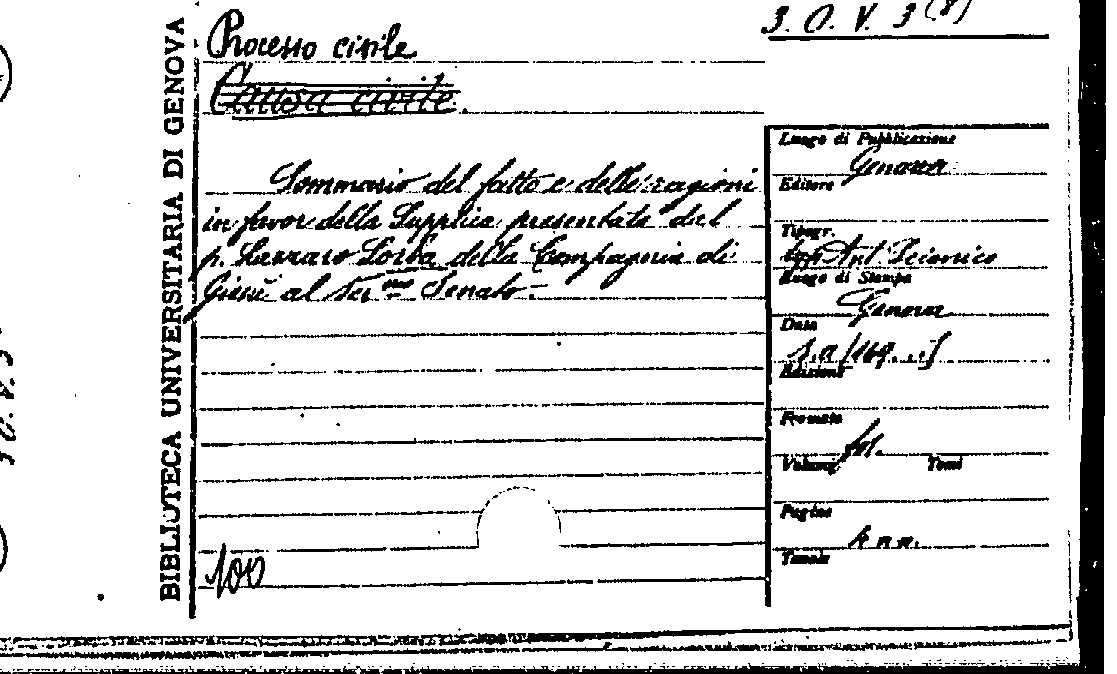 3. O. V. 3 (8)
BIBLIOTECA UNIVERSITARIA DI GENOVA
Processo civile
Causa civile.
Sommario del fatto e delle ragioni
in favor della Supplica presentata dal
p. Lazzaro Sorba della Compagnia di
Giesù al Ser.mo Senato.-
100
Luogo di Pubblicazione
Genova
Editore
Tipogr.
typ. Ant. Scionico
Luogo di Stampa
Genova
Data
s.a [169...]
Edizione
Formato
fol.
Volumi Tomi
Pagine
Tavole
3 O. V. 3